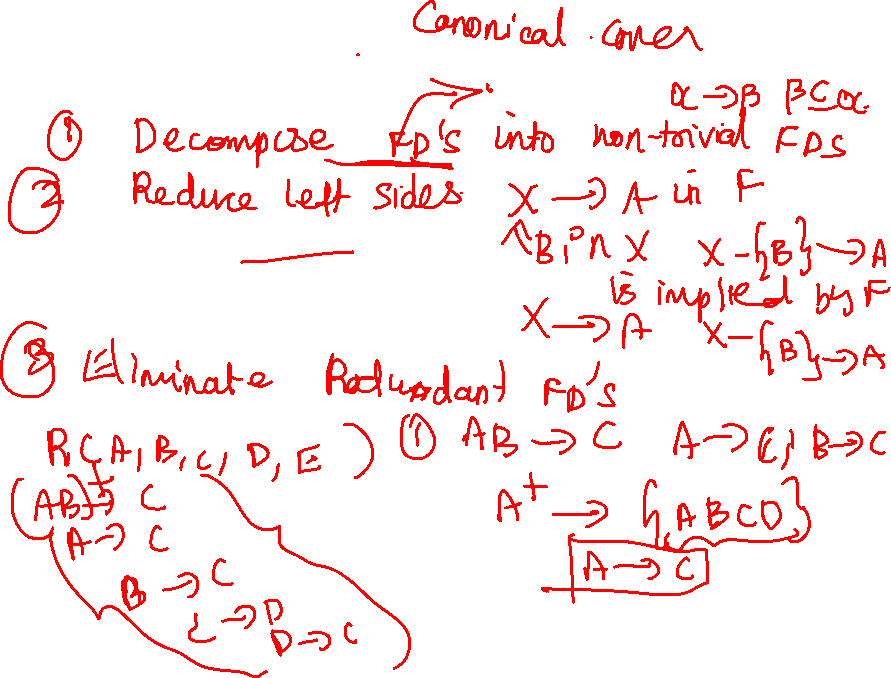 Canonical cover
α → β β ⊆ α
① Decompose FD's into non-trivial FDS
② Reduce left sides X → A in F
B in X X - {B} → A
is implied by F
X → A X - {B} → A
③ Eliminate Redundant FD's
R(A, B, C, D, E) ① AB → C A → C, B → C
(AB)+ → C A+ → {ABCD}
A → C A → C
B → C
C → D
D → C